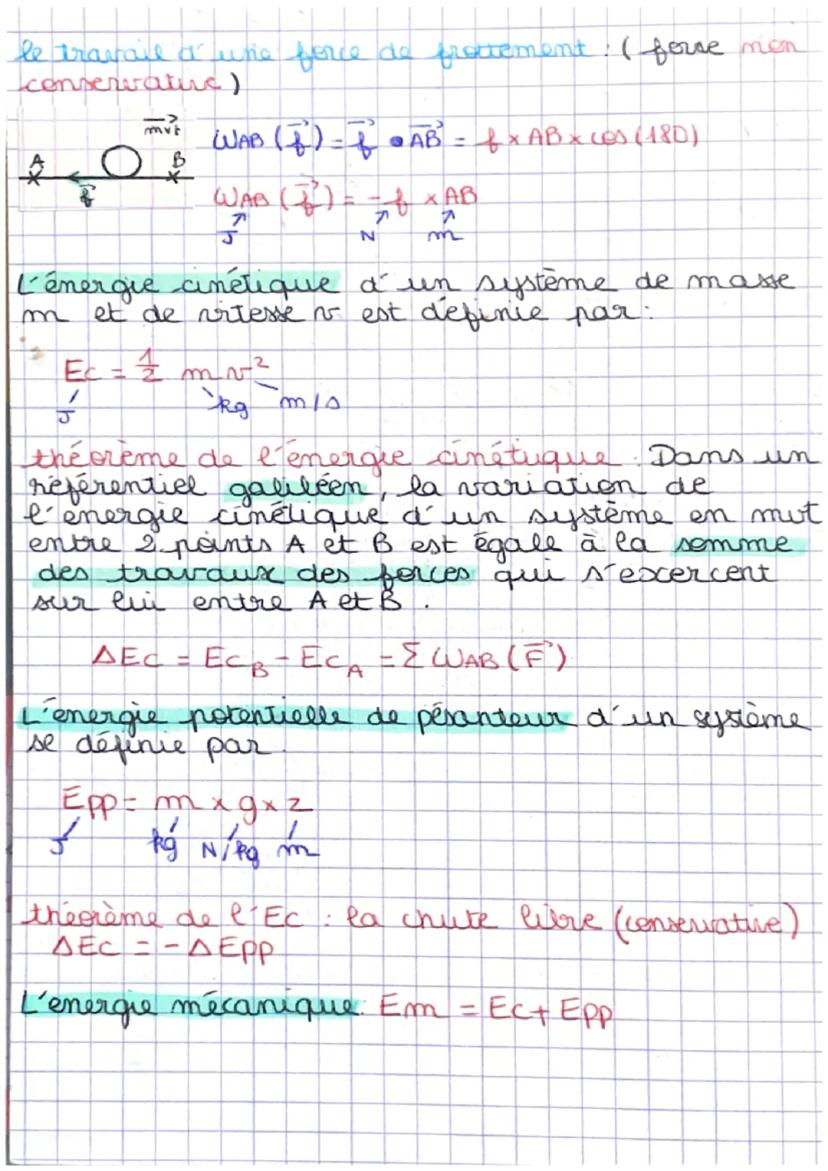 le travail d'une force de frottement : (force non
conservative)
mvt
A B
f
WAB (f) = f • AB = f x AB x cos (180)
WAB (f) = -f x AB
J N m
L'énergie cinétique d'un système de masse
m et de vitesse v est définie par :
Ec = 1/2 m v²
J kg m/s
théorème de l'énergie cinétique : Dans un
référentiel galiléen, la variation de
l'énergie cinétique d'un système en mvt
entre 2 points A et B est égale à la somme
des travaux des forces qui s'excercent
sur lui entre A et B.
ΔEc = EcB - EcA = Σ WAB (F)
L'énergie potentielle de pésanteur d'un système
se définie par
Epp = m x g x z
J kg N/kg m
théorème de l'Ec : la chute libre (conservative)
ΔEc = - ΔEpp
L'énergie mécanique : Em = Ec + Epp